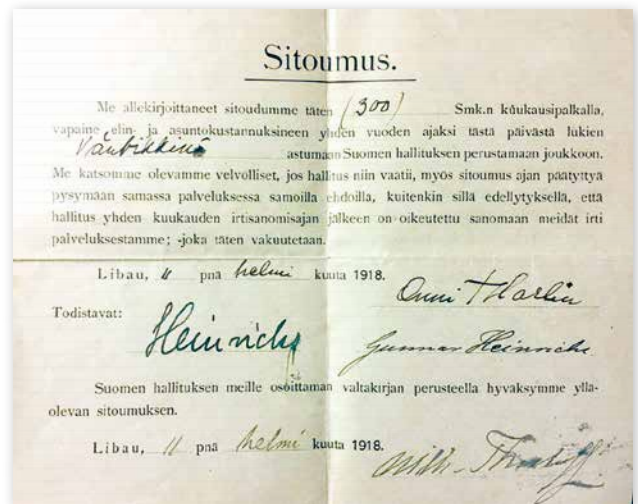 Sitoumus.
Me allekirjoittaneet sitoudumme täten (300) Smk.n kuukausipalkalla,
vapaine elin- ja asuntokustannuksineen yhden vuoden ajaksi tästä päivästä lukien
Vänrikkinä astumaan Suomen hallituksen perustamaan joukkoon.
Me katsomme olevamme velvolliset, jos hallitus niin vaatii, myös sitoumus ajan päätyttyä
pysymään samassa palveluksessa samoilla ehdoilla, kuitenkin sillä edellytyksellä, että
hallitus yhden kuukauden irtisanomisajan jälkeen on oikeutettu sanomaan meidät irti
palveluksestamme; -joka täten vakuutetaan.
Libau, 11 pnä helmi kuuta 1918.
Onni
Todistavat:
Heinrichs
Gunnar Heinrichs
Suomen hallituksen meille osoittaman valtakirjan perusteella hyväksymme yllä-
olevan sitoumuksen.
Libau, 11 pnä helmi kuuta 1918.